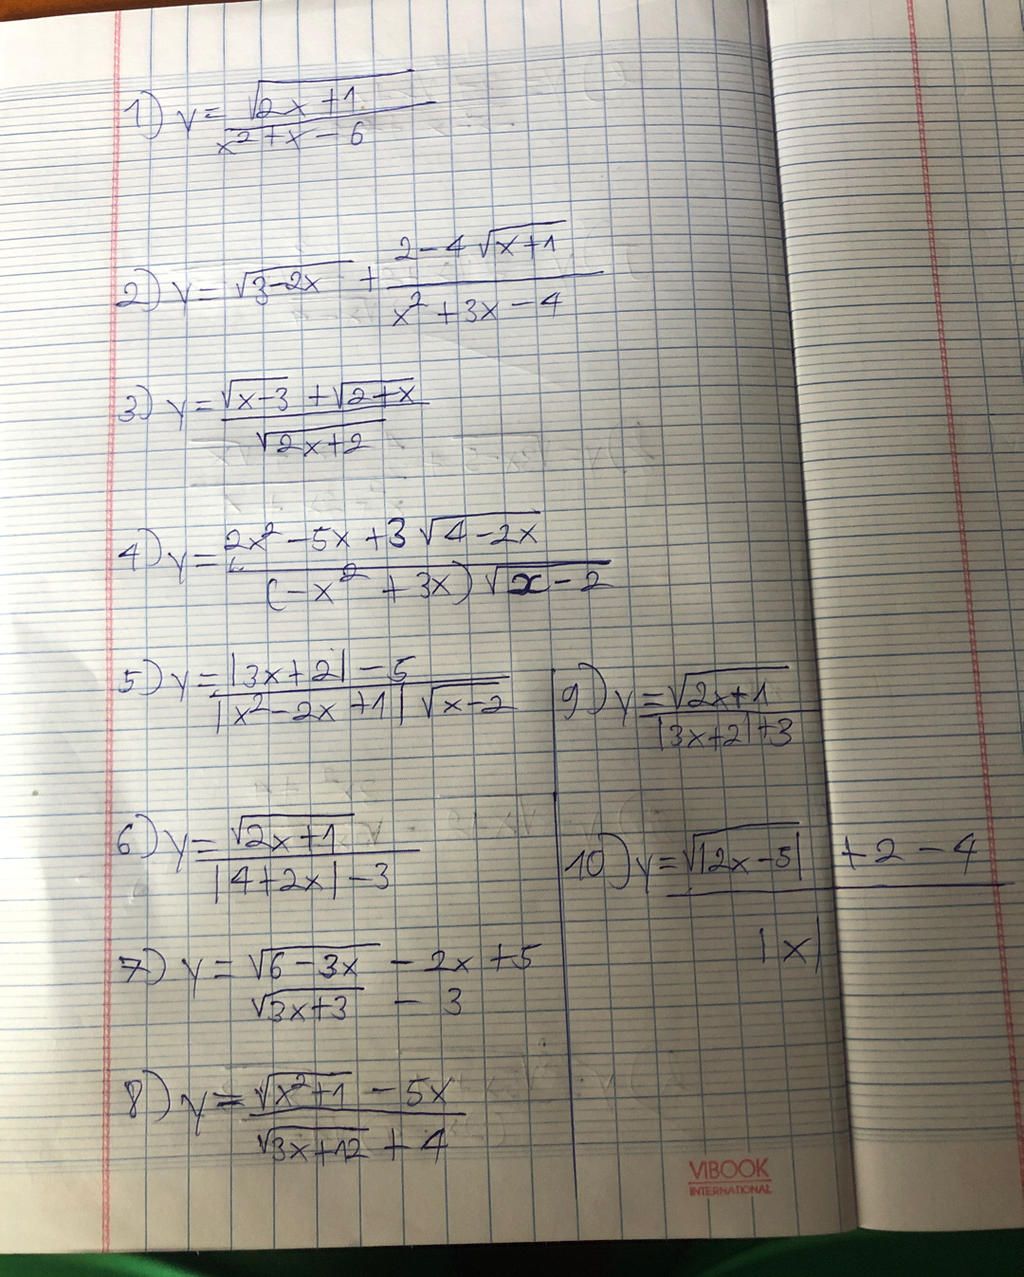 1) y = √(2x + 1) / (x² + x - 6)
2) y = √(3-2x) + (2 - 4√(x+1)) / (x² + 3x - 4)
3) y = (√(x-3) + √(2+x)) / √(2x+2)
4) y = (2x² - 5x + 3√(4-2x)) / ((-x² + 3x)√(x-2))
5) y = (|3x+2| - 5) / (|x² - 2x + 1| √(x-2))
6) y = √(2x+1) / (|4+2x| - 3)
7) y = √(6-3x) - 2x + 5
√(3x+3) - 3
8) y = (√(x²+1) - 5x) / (√(3x+12) + 4)
9) y = √(2x+1) / (|3x+2|+3)
10) y = (√|2x-5| + 2 - 4) / |x|
VIBOOK
INTERNATIONAL